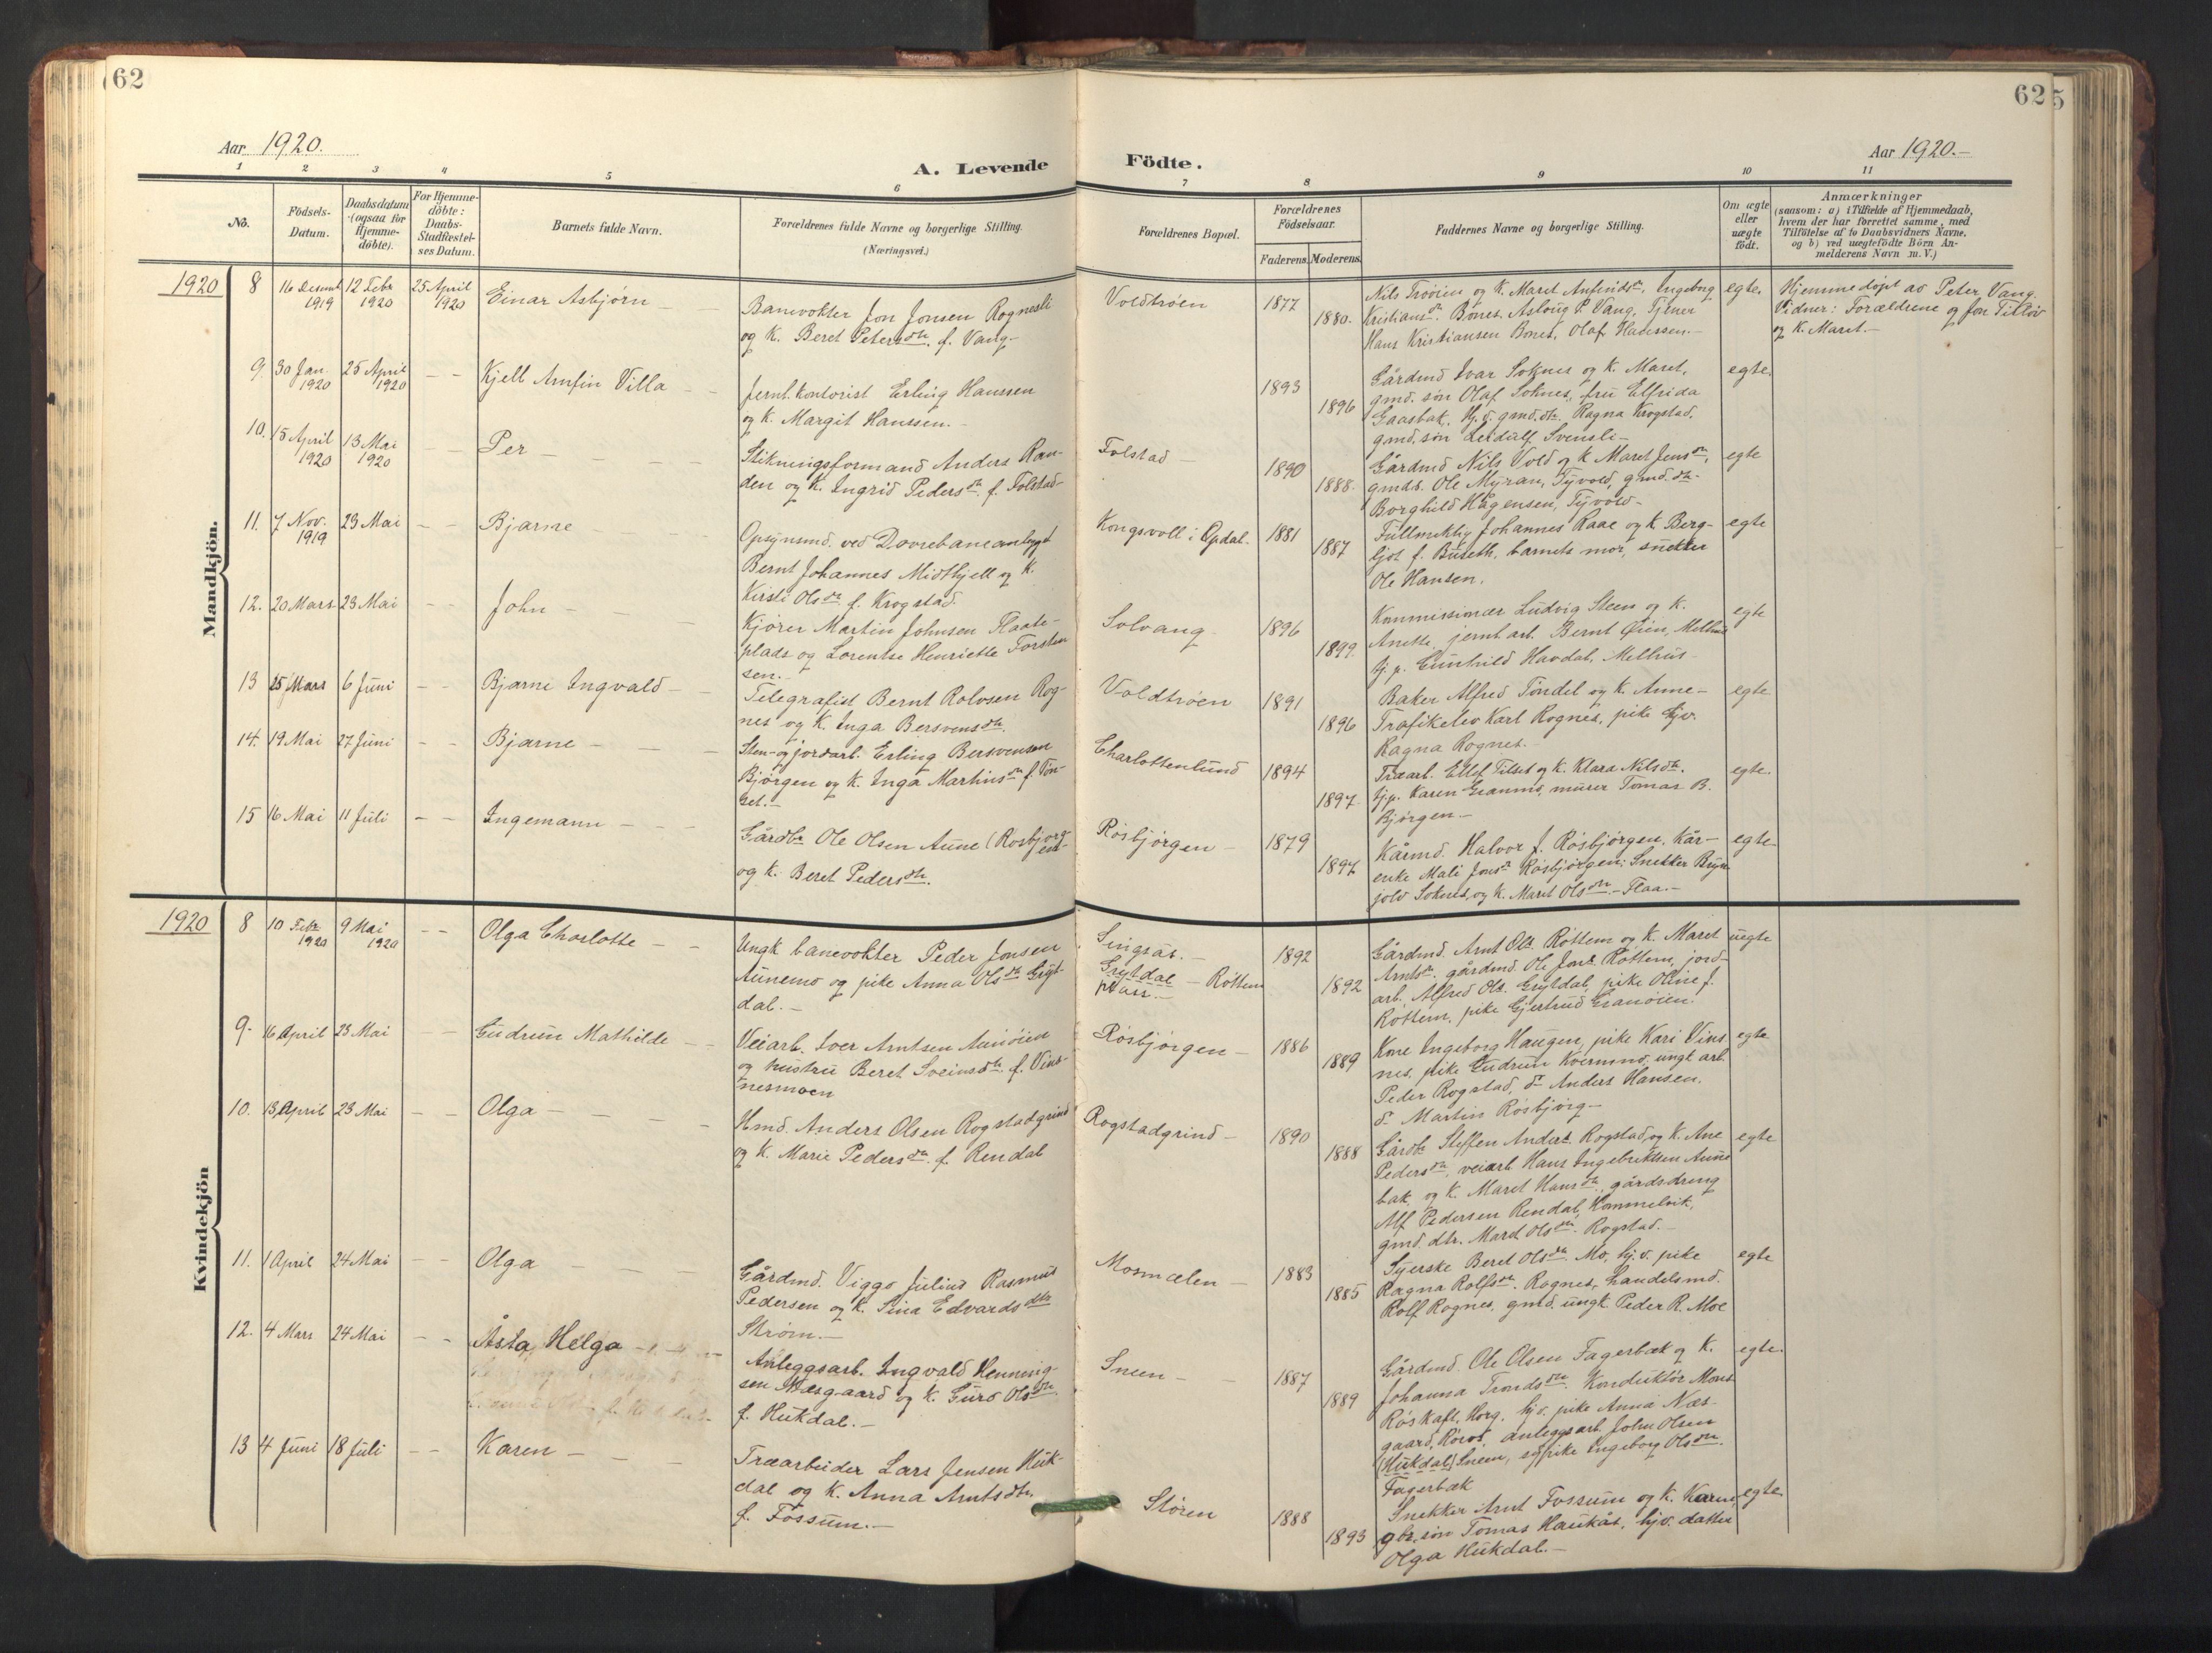 62
625
Aar 1920.
A. Levende
Födte.
Aar 1920.-
1 2 3 4 5 6 7 8 9 10 11
No.
Födsels-
Datum.
Daabsdatum
(ogsaa för
Hjemme-
döbte).
For Hjemme-
döbte:
Daabs-
Stadfæstel-
ses Datum.
Barnets fulde Navn.
Forældrenes fulde Navne og borgerlige Stilling.
(Næringsvei.)
Forældrenes Bopæl.
Forældrenes
Födselsaar.
Faderens. Moderens.
Faddernes Navne og borgerlige Stilling.
Om ægte
eller
uægte
födt.
Anmærkninger
(saasom: a) i Tilfælde af Hjemmedaab,
hvem der har forrettet samme, med
Tilföielse af to Daabsvidners Navne,
og b) ved uægtefödte Börn An-
melderens Navn m.V.)
Mandkjön.
1920 8 16 Desemb 1919 12 Febr 1920 25 April 1920 Einar Asbjørn
Banevokter Jon Jonsen Rognesli
og K. Beret Petersdtr. f. Vang-
Voldtrøen 1877 1880.
Nils Trøøien og K. Maret Anfindsdtr, Ingeborg
Kristiansdtr. Bones, Aslaug P. Vang, Tjener
Hans Kristiansen Bones, Olaf Hanssen.-
egte.
Hjemmedøpt av Peter Vang.
Vidner: Forældrene og Jon Tilløv
og K. Maret.-
9. 30 Jan. 1920 25 April 1920 - - Kjell Arnfin Villa
Jernb.kontorist Erling Hanssen
og K. Margit Hanssen.-
1893 1896
Gårdmd Ivar Soknes og K. Maret,
gmd. søn Olaf Soknes, fru Elfrida
Gaasbak, Hj.v. gmd.dtr. Ragna Krogstad,
gmd.søn Leidulf Svensli-
egte.
10. 15 April 1920 13 Mai 1920 - - Per
Stikningsformand Anders Ran-
den og K. Ingrid Pedersdtr. f. Folstad-
Folstad 1890 1888.
Gårdmd Nils Vold og K Maret Jensdtr,
gmds. Ole Myran, Tyvold, gmd.dtr.
Borghild Hågensen, Tyvold-
egte
11. 7 Nov. 1919 23 Mai - - Bjarne
Opsynsmd. ved Dovrebaneanlegget
Bernt Johannes Midtkjell og K.
Kirsti Olsdtr f. Krogstad.
Kongsvoll i Opdal. 1881 1887
Fullmektig Johannes Raae og K. Berg-
ljot f. Buseth, barnets mor, snekker
Ole Hansen.
egte
12. 20 Mars 23 Mai - - John
Kjører Martin Johnsen Flaate-
plads og Lorentse Henriette Torsten
sen.-
Solvang 1896 1899.
Kommissionær Ludvig Steen og K.
Anette, jernb.arb. Bernt Øien, Melhus
tj.p. Gunhild Havdal, Melhus-
egte
13 25 Mars 6 Juni - - Bjarne Ingvald
Telegrafist Bernt Rolvsen Rog-
nes og K. Inga Bersvensdtr.
Voldtrøen 1891 1896
Baker Alfred Tøndel og K. Anne-
Trafikelev Karl Rognes, pike hjv.
Ragna Rognes.-
egte
14. 19 Mai 27 Juni - - Bjarne
Sten- og jordarb. Erling Bersvensen
Bjørgen og K. Inga Martinsdtr f. Tøn-
set.-
Charlottenlund 1894 1897
Træarb. Ellef Tilset og K. Klara Nilsdtr.
tj.p. Karen Granmo, murer Tomas B.
Bjørgen-
egte.
15 16 Mai 11 Juli - - Ingemann
Gårdbr Ole Olsen Aune (Røsbjørgen)
og K. Beret Pedersdtr.
Røsbjørgen 1879 1897
Kårmd. Halvor J. Røsbjørgen, Kår-
enke Mali Jonsdtr Røsbjørgen, Snekker Bryn
jolv Soknes, og K. Maret Olsdtr.- Flaa.-
egte
Kvindekjön
1920 8 10 Febr 1920 9 Mai 1920 - - Olga Charlotte
Ungk banevokter Peder Jonsen
Aunemo og pike Anna Olsdtr Gryt-
dal.-
Singsås.-
Grytdal - Rottem
plass.-
1892 1892
Gårdmd. Arnt Ols. Rottem og K. Maret
Arntsdtr. gårdmd. Ole Jons. Rottem, jord-
arb. Alfred Ols. Grytdal, pike Oline J.
Rottem, pike Gjertrud Granøien.
uegte
9. 16 April 23 Mai - - Gudrun Mathilde
Veiarb. Iver Arntsen Aunøien
og hustru Beret Sveinsdtr. f. Vins-
nesmoen
Røsbjørgen 1886 1889
Kone Ingeborg Haugen, pike Kari Vins
nes, pike Gudrun Kvernmo, ungk arb.
Peder Rogstad, do Anders Hansen.
do Martin Røsbjørg-
egte
10. 13 April 23 Mai - - Olga
Hmd. Anders Olsen Rogstadgrind
og K. Marie Pedersdtr. f. Rendal
Rogstadgrind 1890 1888
Gårdbr Steffen Anders. Rogstad og K. Ane
Pedersdtr, veiarb. Hans Ingebriktsen Aune
bak, og K. Maret Hansdtr, gårdsdreng
Alf Pedersen Rendal, Hommelvik,
gmd. dtr. Maret Olsdtr. Rogstad.-
egte
11. 1 April 24 Mai - - Olga
Gårdmd. Viggo Julius Rasmus
Pedersen og K. Sina Edvardsdtr
Strøm.-
Mosmælen 1883 1885
Syerske Beret Olsdtr. Mo, hj.v. pike
Ragna Rolfsdtr. Rognes, handelsmd.
Rolf Rognes, gmd. ungk. Peder R. Moe
egte
12. 4 Mars 24 Mai - - Åsta, Helga
Anleggsarb. Ingvald Henning-
sen Næsgaard og K. Guro Olsdtr
f. Hukdal.-
Sneen 1887 1889
Gårdmd. Ole Olsen Fagerbæk og K.
Johanna Trondsdtr. Konduktør Mons
Røskaft, Horg, hj.v. pike Anna Næs-
gaard, Røros, anleggsarb. John Olsen
(Hukdal) Sneen, og pike Ingeborg Olsdtr.
Fagerbæk
egte.
13 4 Juni 18 Juli - - Karen
Træarbeider Lars Jensen Huk-
dal og K. Anna Arntsdtr.
f. Fossum.-
Støren 1888 1893
Snekker Arnt Fossum og K. Karen,
gbr.søn Tomas Haukås, hjv. datter
Olga Hukdal.-
egte